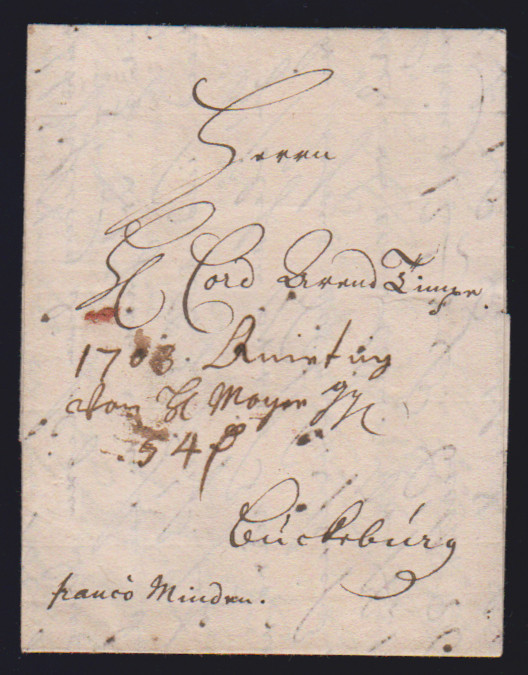 Herrn
H Cord Arend Timpe
1703. Quietung
von H Meyer
54
Bückeburg
franco Minden.